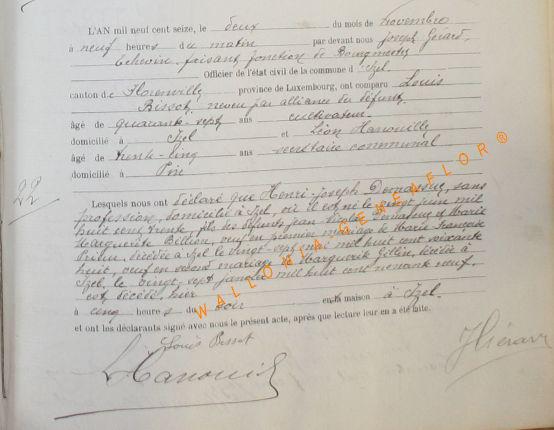 L'AN mil neuf cent seize, le deux du mois de novembre
à neuf heures du matin par devant nous Joseph Gérard,
Echevin faisant fonction de Bourgmestre
Officier de l'état civil de la commune d'Izel
canton de Florenville province de Luxembourg, ont comparu Louis
Bissot, neveu par alliance du défunt,
âgé de quarante-sept ans cultivateur
domicilié à Izel et Léon Hanouille
âgé de trente-cinq ans secrétaire communal
domicilié à Pin
22
Lesquels nous ont déclaré que Henri-Joseph Demasue, sans
profession, domicilié à Izel, où il est né le vingt juin mil
huit cent trente, fils des défunts Jean Nicolas Demasue et Marie
Marguerite Billion, veuf en premier mariage de Marie Françoise
décédée à Izel le vingt-sept mil huit cent soixante
huit, veuf en second mariage de Marguerite Gillin, décédée à
Izel, le vingt-sept janvier mil huit cent nonante neuf,
est décédé, hier
à cinq heures du soir en sa maison à Izel.
et ont les déclarants signé avec nous le présent acte, après que lecture leur en a été faite.
Louis Bissot
Hanouille
WALLONIA GENENFLOR ®